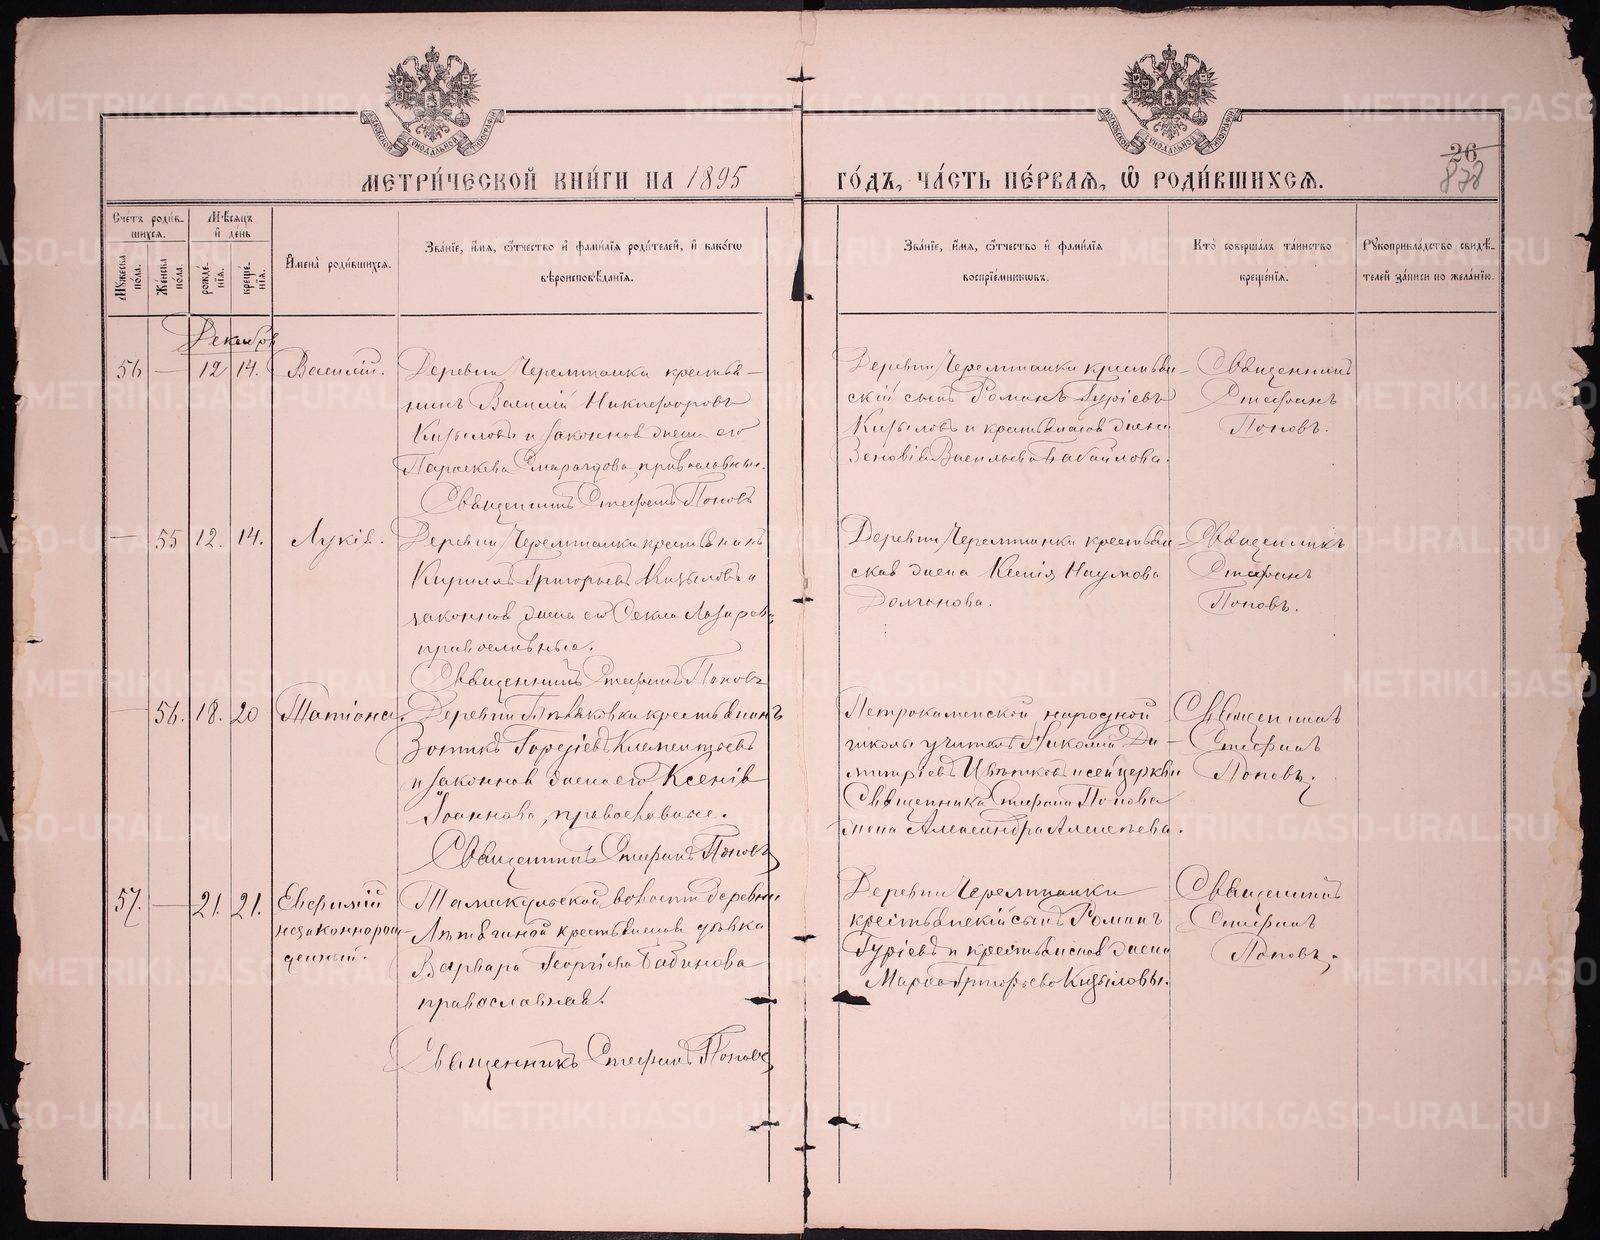 МЕТРИЧЕСКОЙ КНИГИ НА 1895
ГОДЪ, ЧАСТЬ ПЕРВАЯ, Ѡ РОДИВШИХСЯ.
26
878
Счетъ родив-
шихся.
Мѣсяцъ
и день
Мужеска
пола.
Женска
пола.
рожде-
нія.
креще-
нія.
Имена родившихся.
Званіе, имя, отчество и фамилія родителей, и какогѡ
вѣроисповѣданія.
Званіе, имя, отчество и фамилія
воспріемниковъ.
Кто совершалъ таинство
крещенія.
Рукоприкладство свидѣ-
телей записи по желанію.
Декабрь
56 — 12 14. Василій.
Деревни Черемшанки крестья-
нинъ Василій Никифоровъ
Кизиловъ и законная жена его
Параскева Смарагдова, православные.
Священникъ Стефанъ Поповъ
Деревни Черемшанки крестьян-
скій сынъ Романъ Гуріевъ
Кизиловъ и крестьянская жена
Зеновія Васильева Бабайлова.
Священникъ
Стефанъ
Поповъ.
— 55 12. 14. Лукія.
Деревни Черемшанки крестьянинъ
Кириллъ Григорьевъ Кизиловъ и
законная жена его Секла Лазарева,
православные.
Священникъ Стефанъ Поповъ
Деревни Черемшанки крестьян-
ская жена Ксенія Наумова
Долганова.
Священникъ
Стефанъ
Поповъ.
— 56. 18. 20 Татіана.
Деревни крестьянинъ
Зотикъ Гордіевъ Клементьевъ
и законная жена его Ксенія
Іоаннова, православные.
Священникъ Стефанъ Поповъ
Петрокаменской народной
школы учитель Николай Ди-
митріевъ и сей церкви
Священника Стефана Попова
жена Александра Алексѣева.
Священникъ
Стефанъ
Поповъ.
57. — 21. 21. Евфимій
незаконнорож-
денный.
Таликульской волости деревни
крестьянская дѣвка
Варвара Георгіева Бабинова
православная.
Священникъ Стефанъ Поповъ
Деревни Черемшанки
крестьянскій сынъ Романъ
Гуріевъ и крестьянская жена
Марѳа Григорьева Кизиловы.
Священникъ
Стефанъ
Поповъ.
METRIKI.GASO-URAL.RU